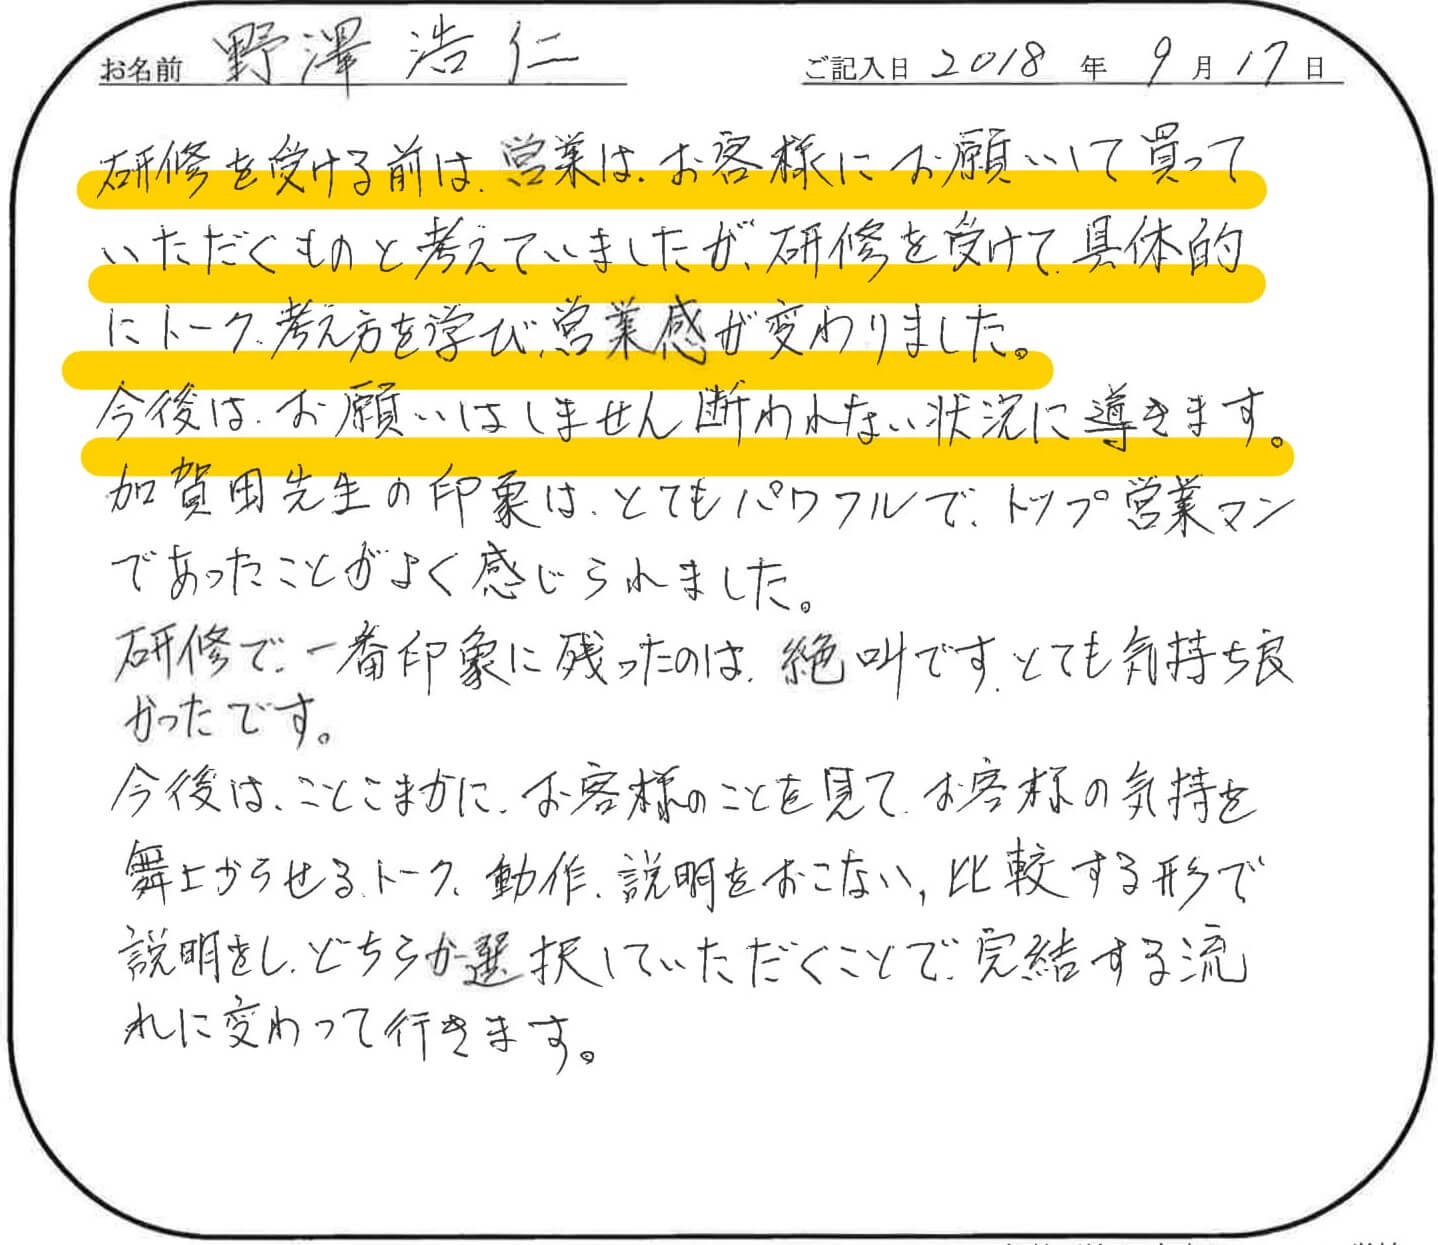 お名前 野澤 浩仁 ご記入日 2018 年 9 月 17 日
研修を受ける前は、営業は、お客様にお願いして買って
いただくものと考えていましたが、研修を受けて、具体的
にトーク、考え方を学び、営業感が変わりました。
今後は、お願いはしません断われない状況に導きます。
加賀田先生の印象は、とてもパワフルで、トップ営業マン
であったことがよく感じられました。
研修で、一番印象に残ったのは、絶叫です、とても気持ち良
かったです。
今後は、ことこまかに、お客様のことを見て、お客様の気持を
舞上がらせる、トーク、動作、説明をおこない、比較する形で
説明をし、どちらか選択していただくことで、完結する流
れに変わって行きます。